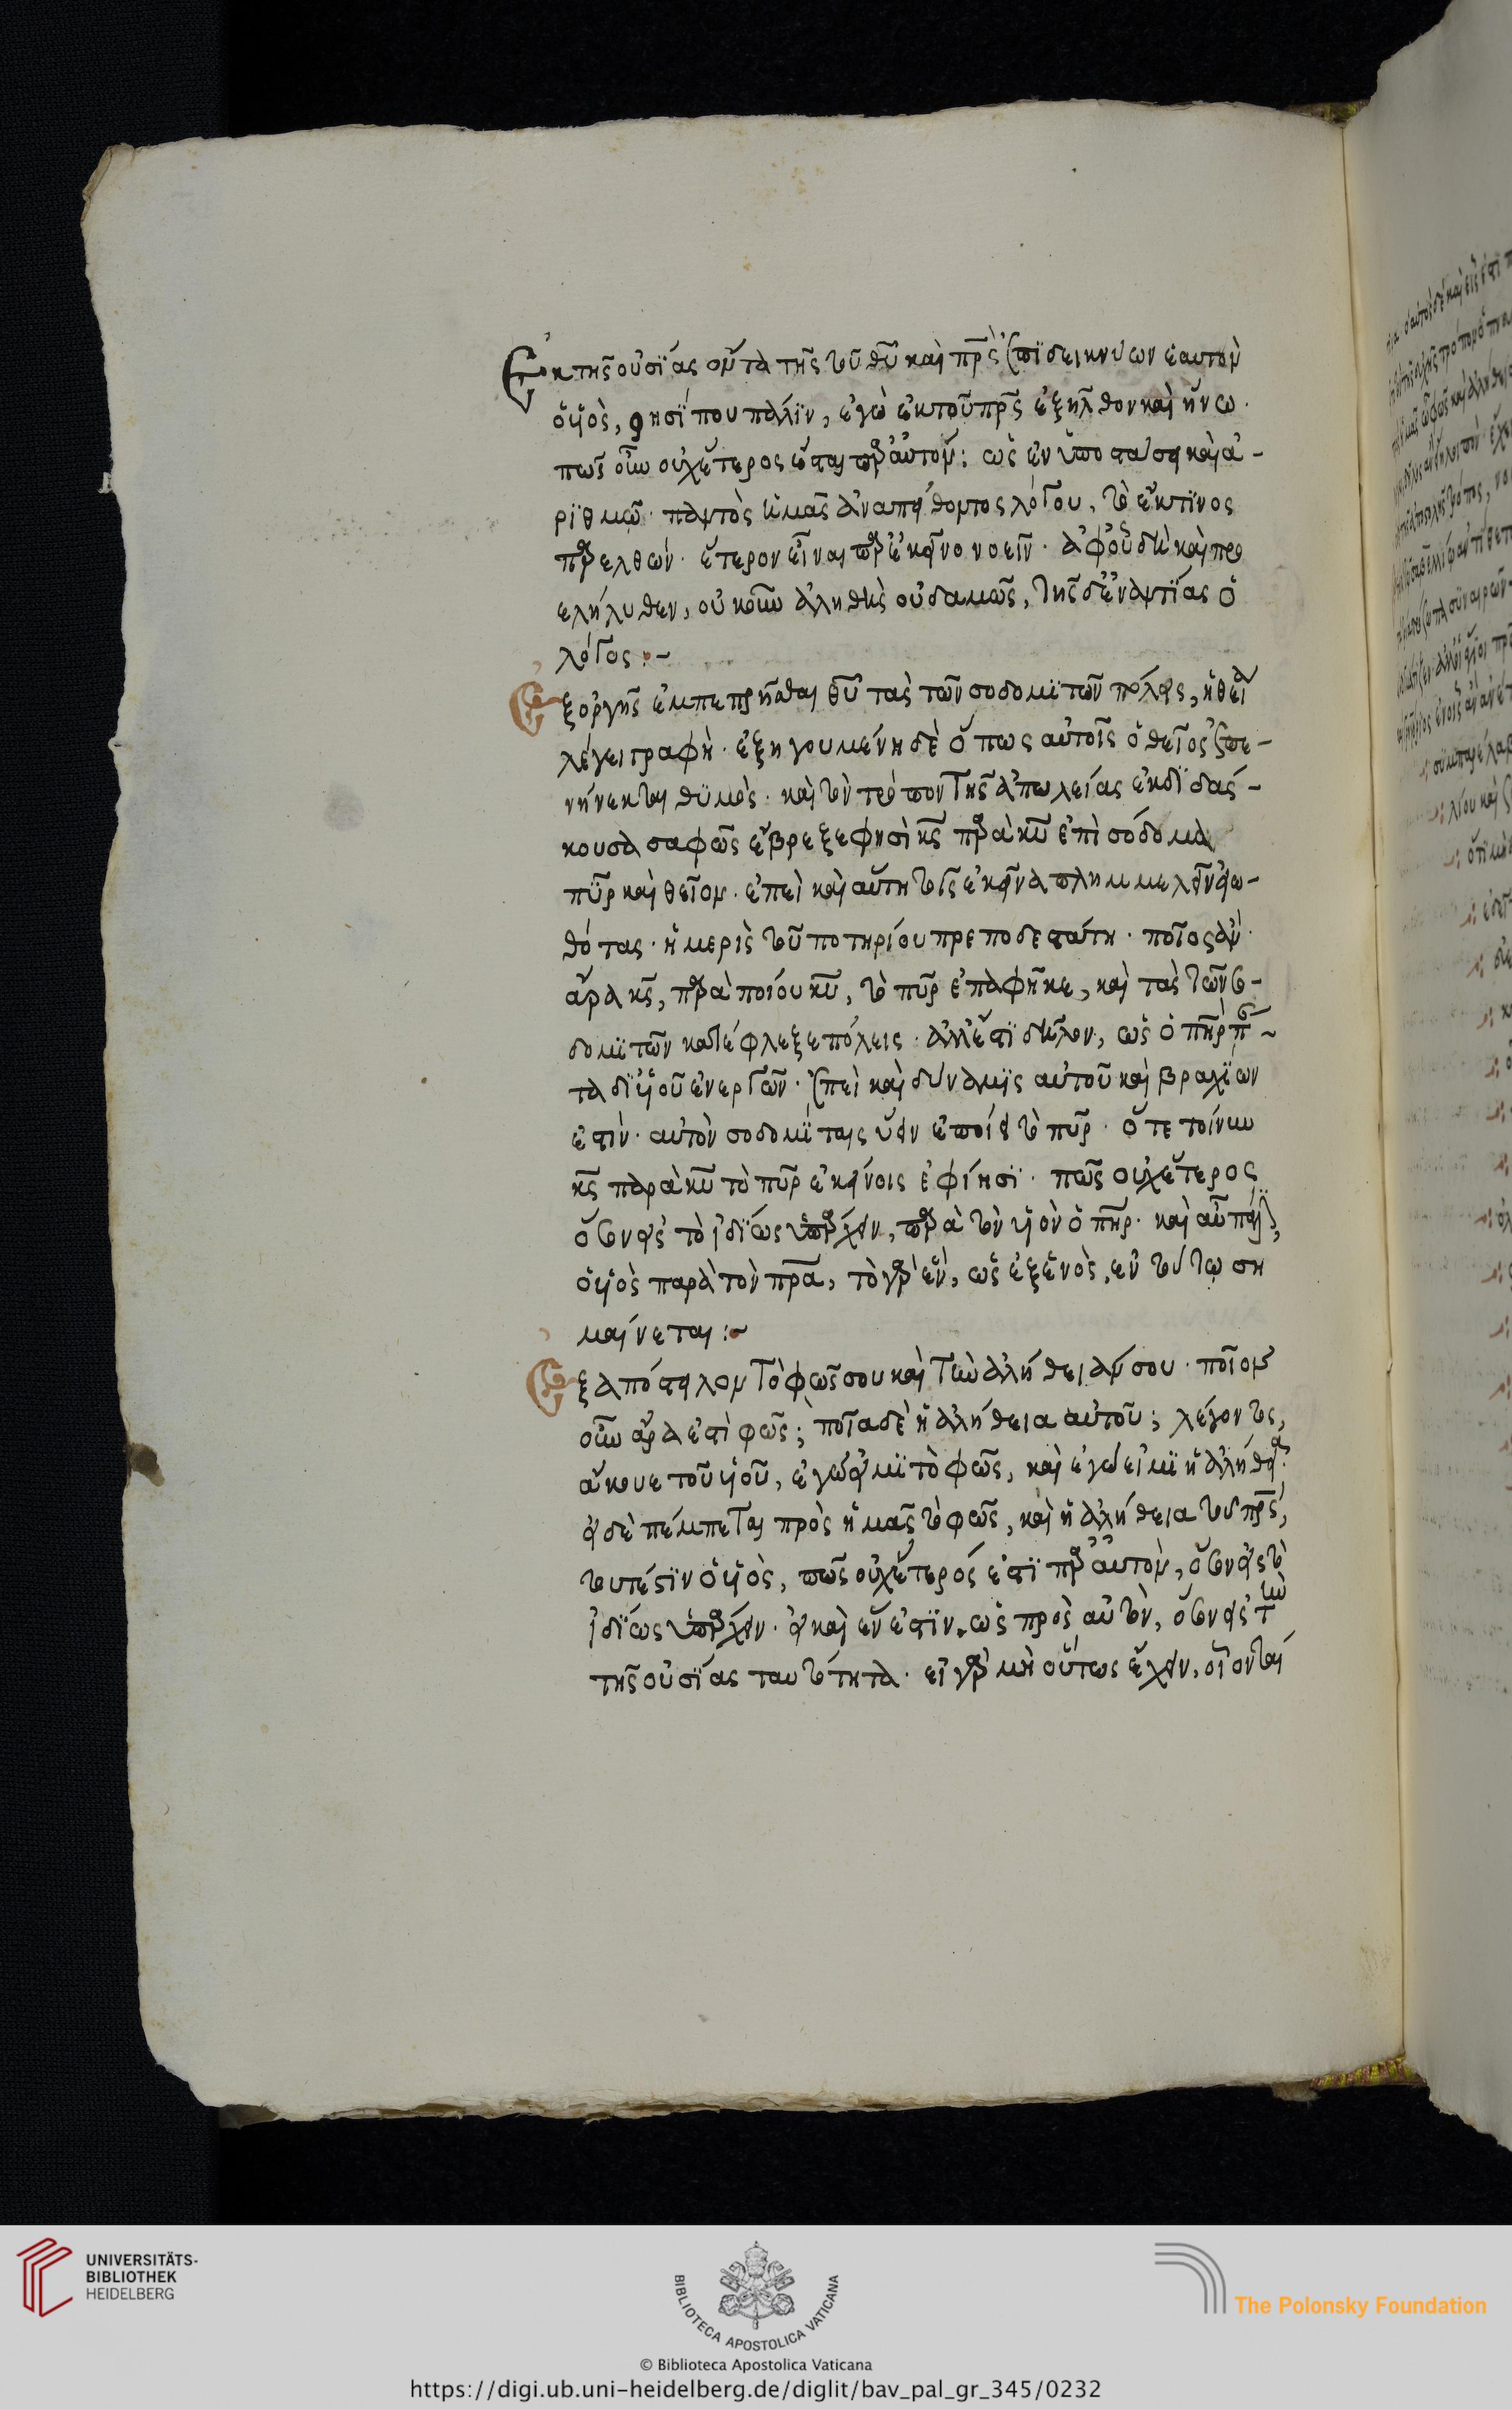 Ἐκ τῆς οὐσίας ὄντα τῆς τοῦ θυ καὶ πρς ἐπιδεικνύων ἑαυτὸν
ὁ υἱὸς, φησί που πάλιν, ἐγὼ ἐκ τοῦ πρς ἐξῆλθον καὶ ἥκω.
πῶς οὖν οὐχ ἕτερος ἔσται παρ' αὐτόν; ὡς ἐν ὑποστάσει καὶ ἀ-
ριθμῷ. παντὸς ἡμᾶς ἀναπείθοντος λόγου, τὸ ἔκ τινος
προελθὼν. ἕτερον εἶναι παρ' ἐκεῖνο νοεῖν. ἀφ' οὗ δὴ καὶ προ
ελήλυθεν, οὐκοῦν ἀληθὴς οὐδαμῶς, τῆς δι' ἐναντίας ὁ
λόγος :~
Ἐξ ὀργῆς ἐμπεπρῆσθαι θυ τὰς τῶν σοδομιτῶν πόλεις, ἡ θεία
λέγει γραφὴ. ἐξηγουμένη δὲ ὅπως αὐτοῖς ὁ θεῖος ἐπε-
νήνεκται θυμὸς. καὶ τὸν τρόπον τῆς ἀπωλείας ἐκδιδάσ-
κουσα σαφῶς ἔβρεξε φησὶ κς παρὰ κυ ἐπὶ σόδομα
πῦρ καὶ θεῖον. ἐπεὶ καὶ αὕτη τοῖς ἐκεῖνα πλημμελεῖν εἰω-
θότας. ἡ μερὶς τοῦ ποτηρίου πρεποδεστάτη. ποῖος ἂν
ἄρα κς, παρὰ ποίου κυ, τὸ πῦρ ἐπαφῆκε, καὶ τὰς τῶν σο-
δομιτῶν κατέφλεξε πόλεις. ἀλλ' ἔστι δῆλον, ὡς ὁ πηρ πάν-
τα δι' υἱοῦ ἐνεργῶν. ἐπεὶ καὶ δύναμις αὐτοῦ καὶ βραχίων
ἐστὶν. αὐτὸν σοδομίταις ὕειν ἐποίει τὸ πῦρ. ὅτε τοίνυν
κς παρὰ κυ τὸ πῦρ ἐκείνοις ἐφίησι. πῶς οὐχ ἕτερος
ὅσον εἰς τὸ ἰδίως ὑπάρχειν, παρὰ τὸν υἱὸν ὁ πηρ. καὶ αὖ πάλιν,
ὁ υἱὸς παρὰ τὸν πρα, τὸ γὰρ ἓν, ὡς ἐξ ἑνὸς, ἐν τούτῳ ση
μαίνεται :~
Ἐξαπόστειλον τὸ φῶς σου καὶ τὴν ἀλήθειάν σου. ποῖον
οὖν ἄρα ἐστὶ φῶς; ποία δὲ ἡ ἀλήθεια αὐτοῦ; λέγοντος,
ἄκουε τοῦ υἱοῦ, ἐγώ εἰμι τὸ φῶς, καὶ ἐγώ εἰμι ἡ ἀλήθεια.
εἰ δὲ πέμπεται πρὸς ἡμᾶς τὸ φῶς, καὶ ἡ ἀλήθεια τοῦ πρς,
τουτέστιν ὁ υἱὸς, πῶς οὐχ ἕτερός ἐστι παρ' αὐτὸν, ὅσον εἰς τὸ
ἰδίως ὑπάρχειν. εἰ καὶ ἕν ἐστιν, ὡς πρὸς αὐτὸν, ὅσον εἰς τὴν
τῆς οὐσίας ταυτότητα. εἰ γὰρ μὴ οὕτως ἔχειν, οἴονται
UNIVERSITÄTS-
BIBLIOTHEK
HEIDELBERG
BIBLIOTECA APOSTOLICA VATICANA
© Biblioteca Apostolica Vaticana
The Polonsky Foundation
https://digi.ub.uni-heidelberg.de/diglit/bav_pal_gr_345/0232